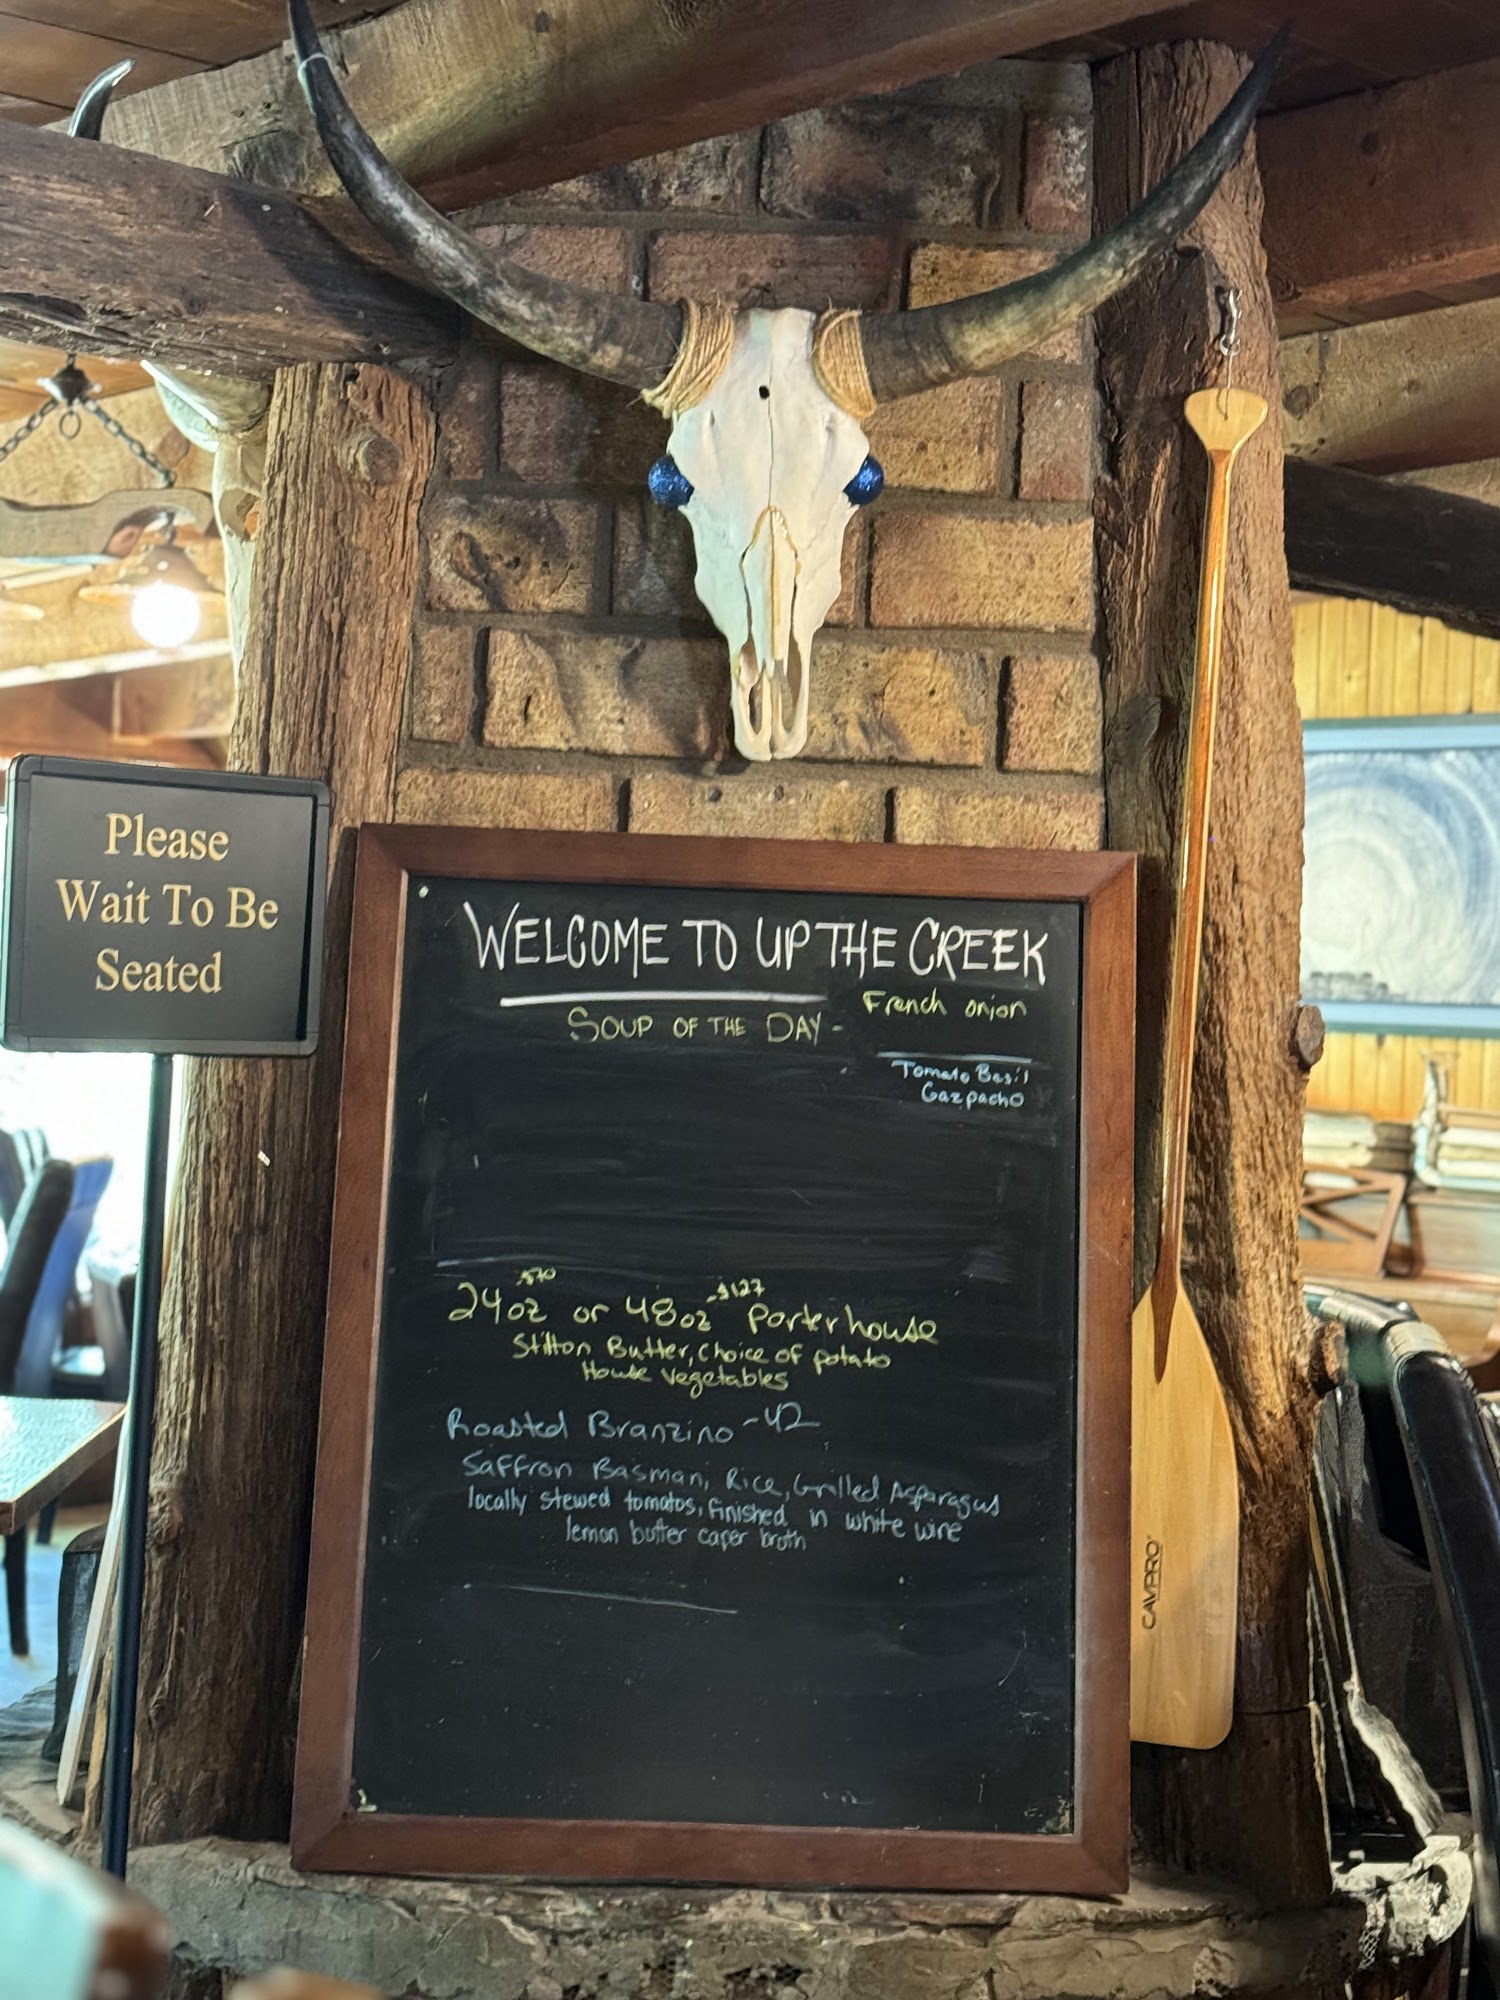 Please
Wait To Be
Seated
WELCOME TO UP THE CREEK
SOUP OF THE DAY - French onion
Tomato Basil
Gazpacho
24oz $70 or 48oz -$127 Porterhouse
Stilton Butter, choice of potato
House vegetables
Roasted Branzino - 42
Saffron Basmani, Rice, Grilled Asparagus
locally stewed tomatos, finished in white wine
lemon butter caper broth
CAVPRO